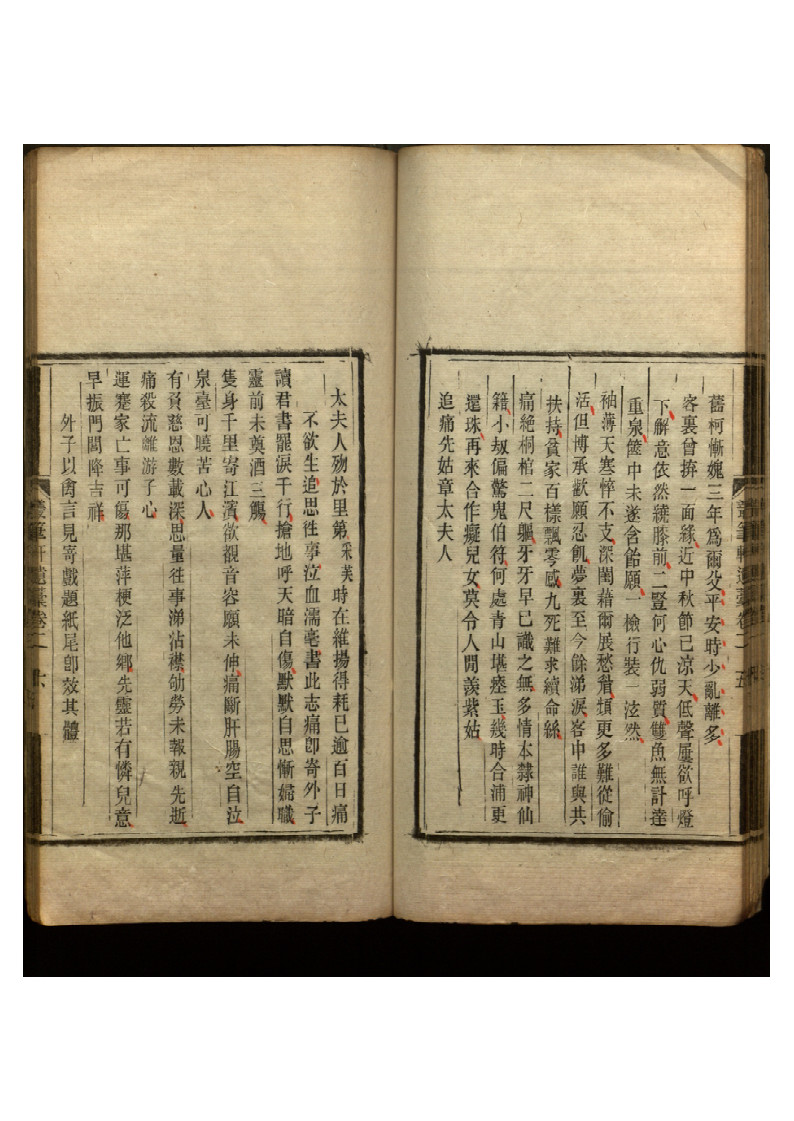 舊柯慚媿三年爲爾父平安時少亂離多
客裏曾拚一面緣近中秋節已涼天低聲屢欲呼燈
下解意依然繞膝前二豎何心仇弱質雙魚無計達
重泉篋中未遂含飴願一檢行裝一泫然
袖薄天寒悴不支深閨藉爾展愁眉頻更多難從偷
活但博承歡願忍飢夢裏至今餘涕淚客中誰與共
扶持貧家百樣飄零感九死難求續命絲
痛絕桐棺二尺軀牙牙早已識之無多情本隸神仙
籍小刼偏驚鬼伯符何處青山堪瘞玉幾時合浦更
還珠再來合作癡兒女莫令人閒羨紫姑
追痛先姑章太夫人
太夫人歿於里第采芙時在維揚得耗已逾百日痛
不欲生追思往事泣血濡毫書此志痛卽寄外子
讀君書罷淚千行搶地呼天暗自傷默默自思慚婦職
靈前未奠酒三觴
隻身千里寄江濱欲覩音容願未伸痛斷肝腸空自泣
泉臺可曉苦心人
有負慈恩數載深思量往事涕沾襟劬勞未報親先逝
痛殺流離游子心
運蹇家亡事可傷那堪萍梗泛他鄉先靈若有憐兒意
早振門閭降吉祥
外子以禽言見寄戲題紙尾卽效其體